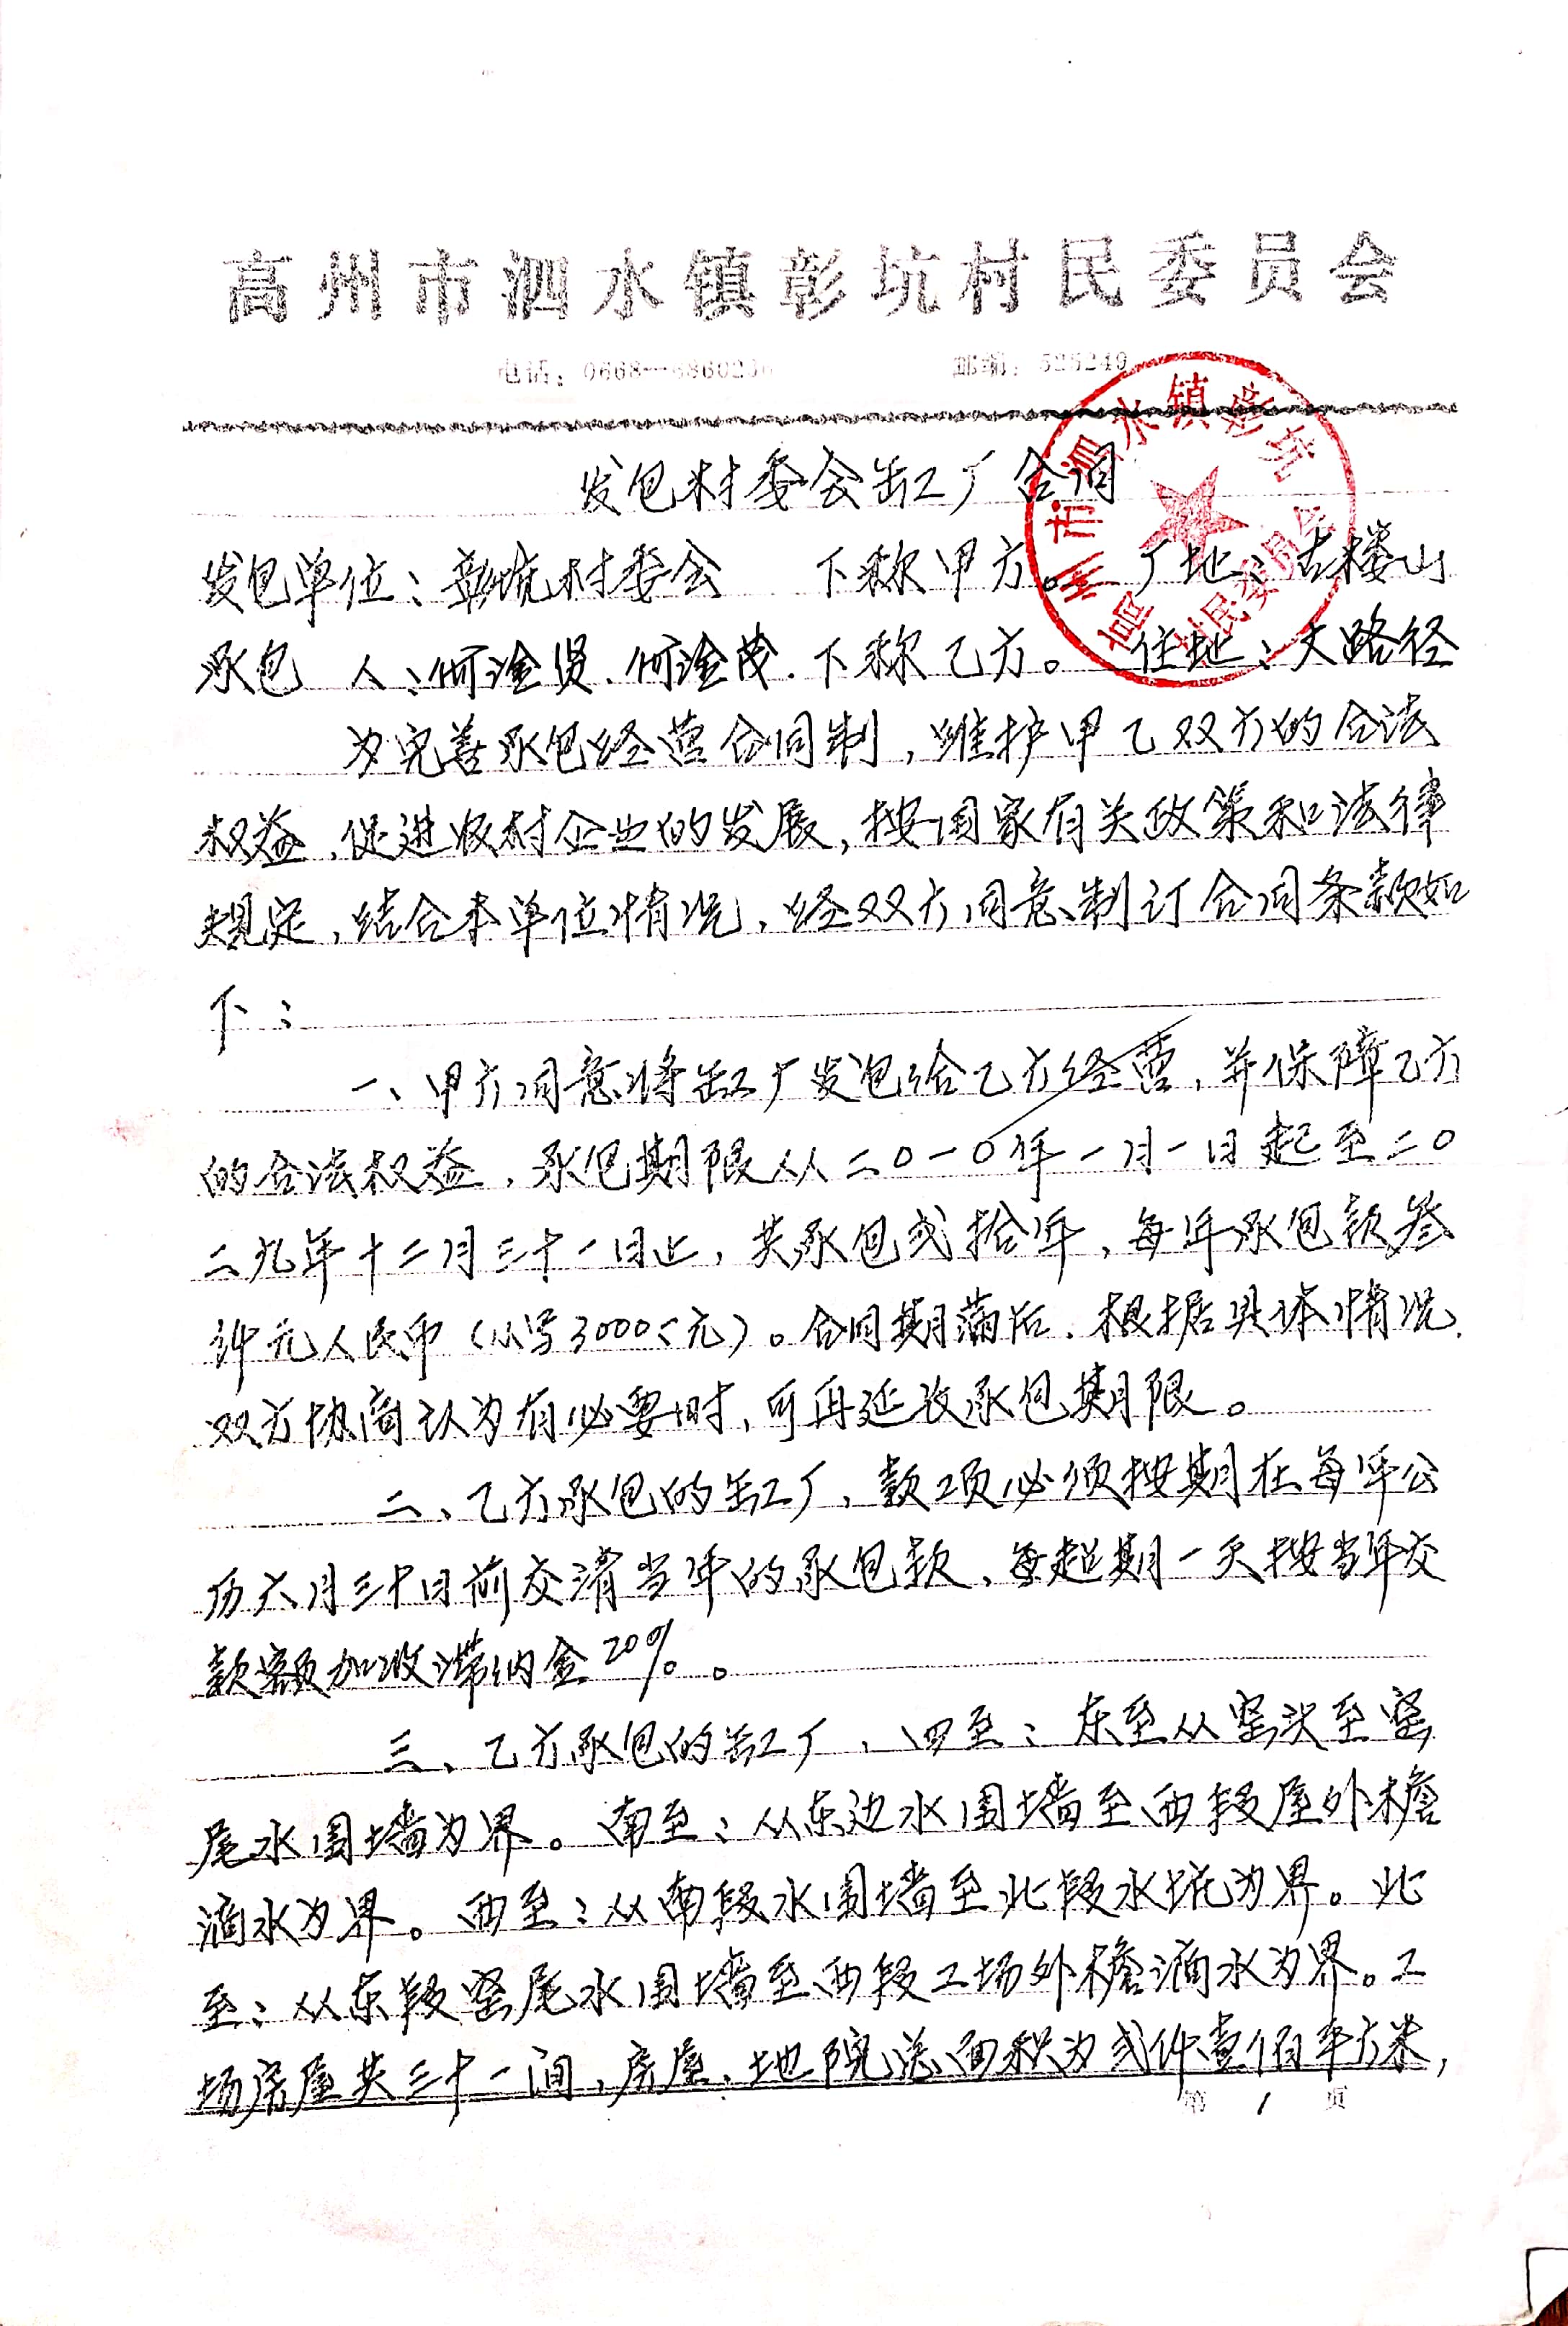 高州市泗水镇彭坑村民委员会
电话：0668—6860236 邮编：525249
发包村委会缸瓦厂合同
发包单位：彭坑村委会 下称甲方。 厂地：古楼山
承包 人：何淦贤、何淦茂．下称乙方。 住地：大路径
为完善承包经营合同制，维护甲乙双方的合法
权益，促进农村企业的发展，按国家有关政策和法律
规定，结合本单位情况，经双方同意，制订合同条款如
下：
一、甲方同意将缸瓦厂发包给乙方经营，并保障乙方
的合法权益，承包期限从二0一0年一月一日起至二0
二九年十二月三十一日止，共承包弍拾年，每年承包款叁
仟元人民币（小写3000元）。合同期满后，根据具体情况，
双方协商认为有必要时，可再延长承包期限。
二、乙方承包的缸瓦厂，款项必须按期在每年公
历六月三十日前交清当年的承包款，每超期一天按当年交
款额加收滞纳金20%。
三、乙方承包的缸瓦厂，四至：东至从窑头至窑
尾水围墙为界。南至：从东边水围墙至西段屋外檐
滴水为界。西至：从南段水围墙至北段水坑为界。北
至：从东段窑尾水围墙至西段工场外檐滴水为界。工
场房屋共三十一间，房屋、地院总面积为弍仟壹佰平方米，
第 1 页
高州市泗水镇彭坑
村民委员会